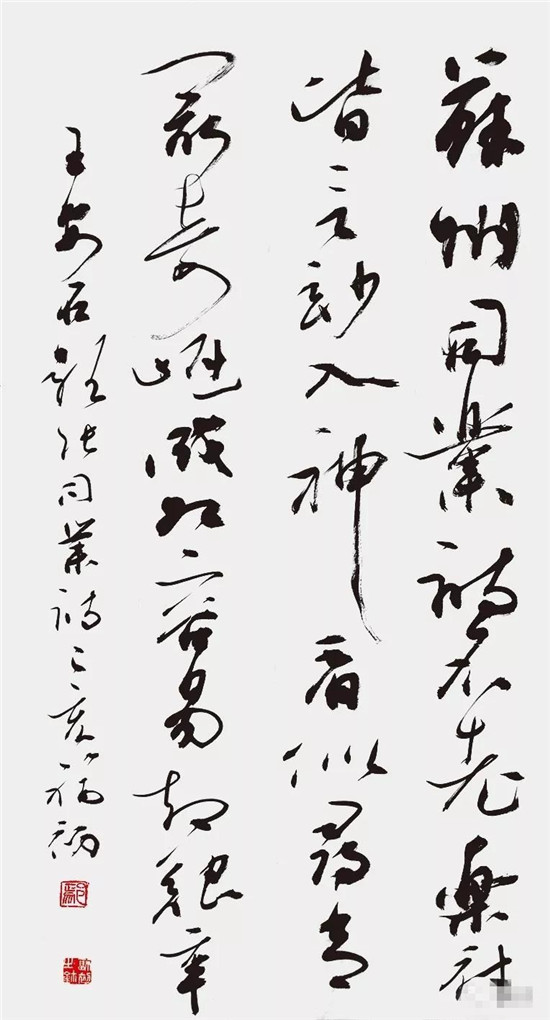 蘇州司業詩名老樂府
皆言妙入神看似尋常
最奇崛成如容易却艱辛
王安石題張司業詩己亥福